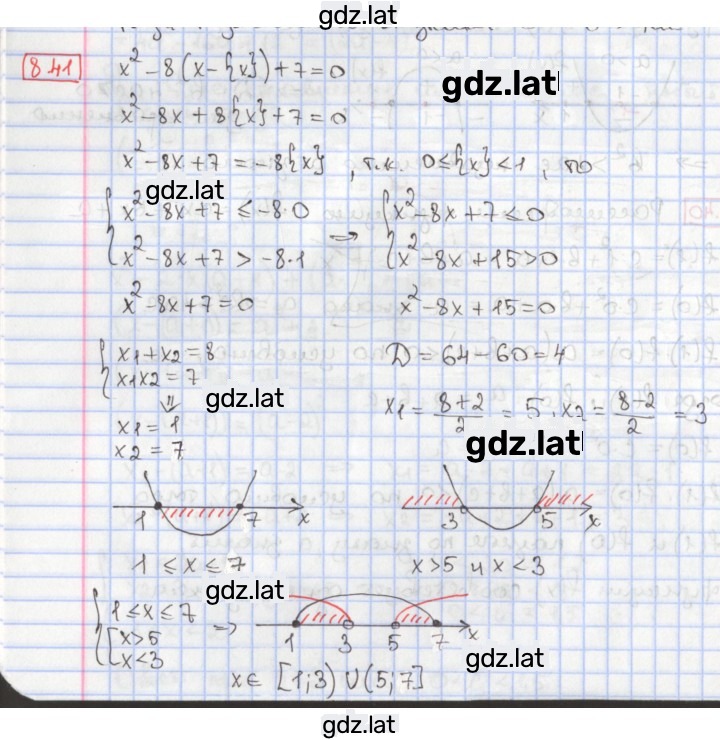 gdz.lat
841 x² - 8(x - {x}) + 7 = 0
gdz.lat
x² - 8x + 8{x} + 7 = 0
x² - 8x + 7 = -8{x}, т.к. 0 ≤ {x} < 1, то
gdz.lat
{ x² - 8x + 7 ≤ -8·0 ⇒ { x² - 8x + 7 ≤ 0
x² - 8x + 7 > -8·1 x² - 8x + 15 > 0
x² - 8x + 7 = 0 x² - 8x + 15 = 0
{ x1 + x2 = 8 D = 64 - 60 = 4
x1x2 = 7
gdz.lat
⇓ x1 = (8+2)/2 = 5, x2 = (8-2)/2 = 3
x1 = 1
x2 = 7
gdz.lat
1 7 x 3 5 x
1 ≤ x ≤ 7 x > 5 и x < 3
gdz.lat
{ 1 ≤ x ≤ 7
[ x > 5 ⇒ 1 3 5 7 x
x < 3
gdz.lat
x ∈ [1; 3) ∪ (5; 7]
gdz.lat